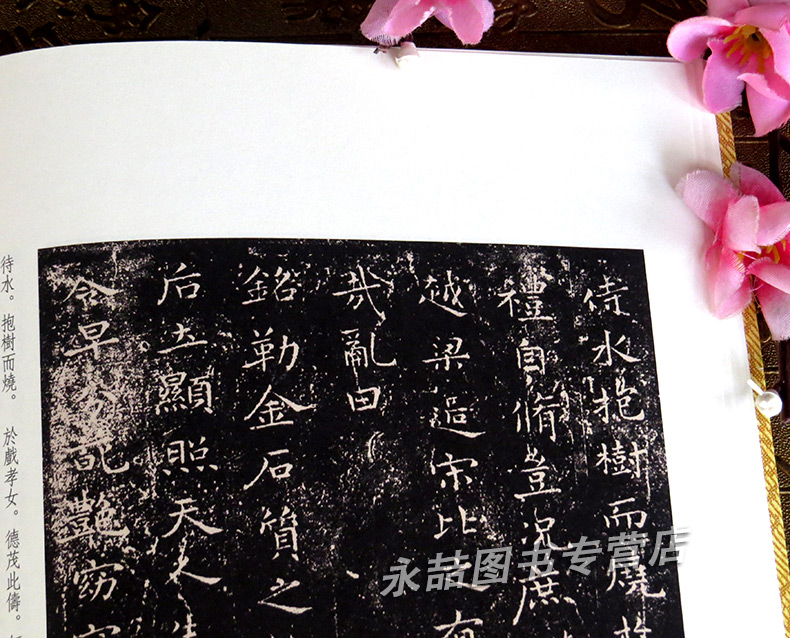 侍水抱樹而燒
禮自脩豈況庶
越梁過宋比之有
哉亂曰
銘勒金石質之
后土顯照天人生
令早分葩艷窈窕
待水。抱樹而燒。於戲孝女。德茂此儔。
永喆图书专营店